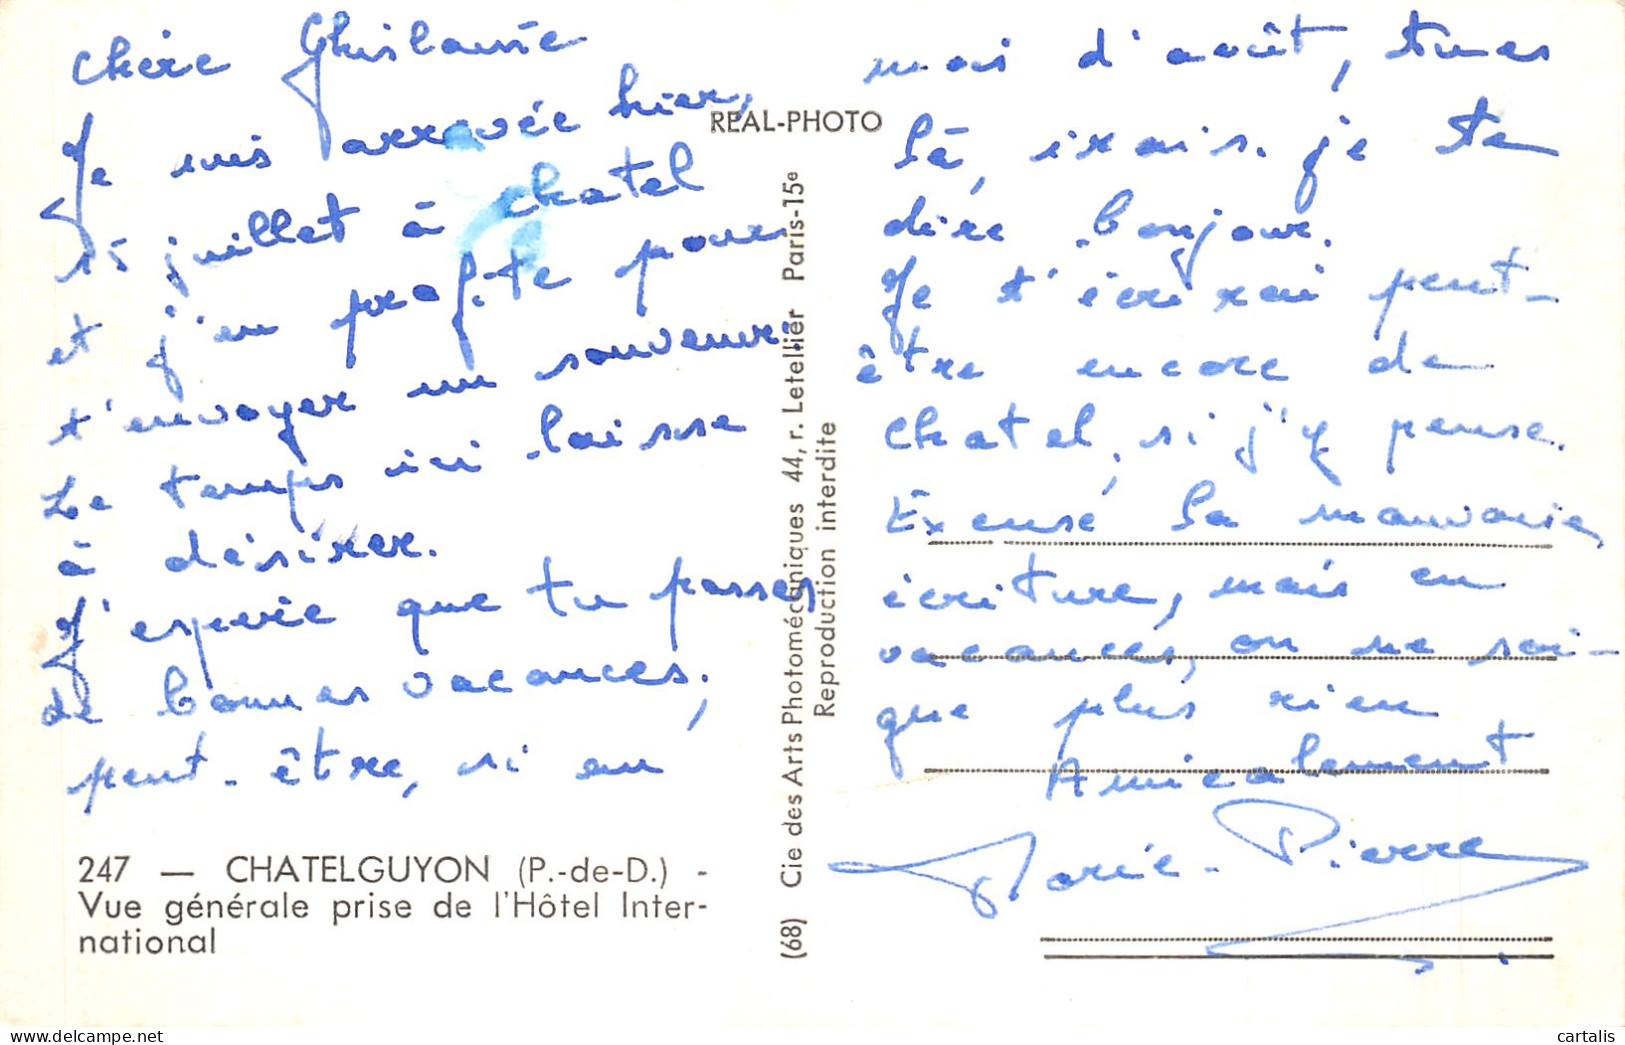 Chère Ghislaine
Je suis arrivée hier,
15 juillet à Chatel
et j'en profite pour
t'envoyer un souvenir.
Le temps ici laisse
à désirer.
J'espère que tu passes
de bonnes vacances.
peut-être, si au
mois d'août, tu es
là, irais-je te
dire bonjour.
Je t'écrirai peut-
être encore de
Chatel, si j'y pense.
Excuse la mauvaise
écriture, mais en
vacances, on ne soi-
gne plus rien
Amicalement
Marie-Pierre
REAL-PHOTO
Cie des Arts Photomécaniques 44, r. Letellier Paris-15e
Reproduction interdite
(68)
247 — CHATELGUYON (P.-de-D.) -
Vue générale prise de l'Hôtel Inter-
national
cartalis